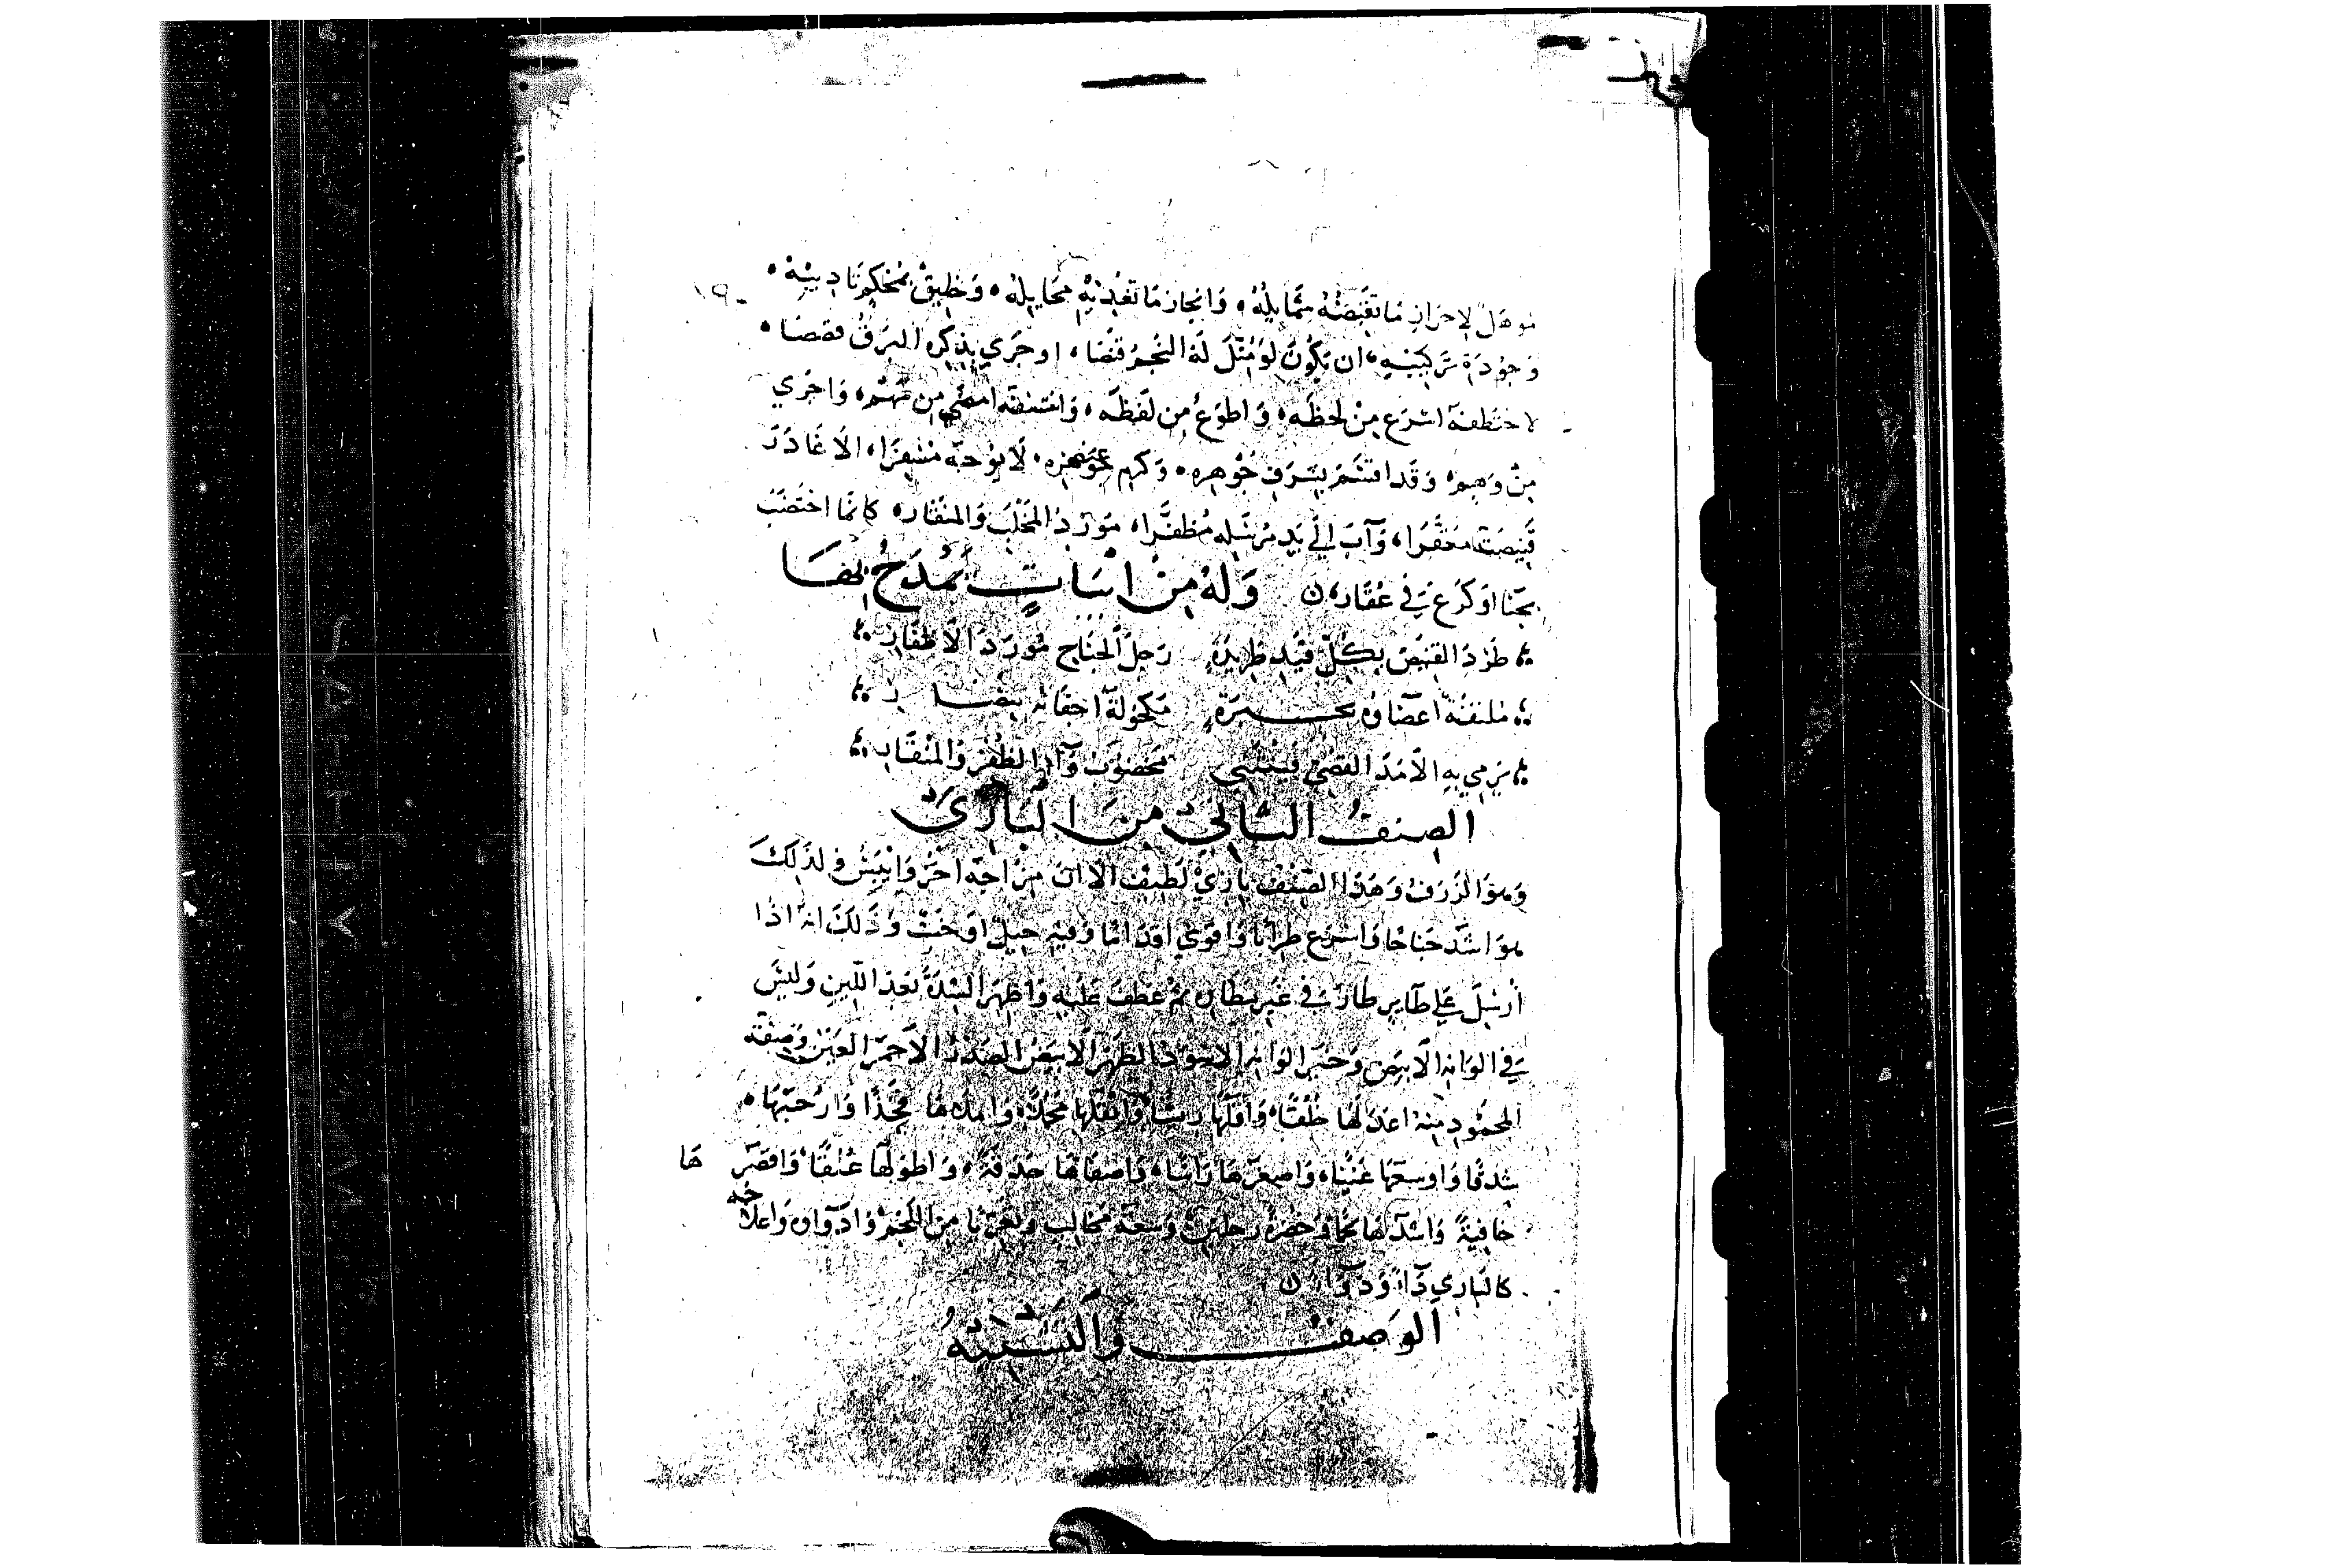 موهل لاحراز ما تقبضه شمايله، وانجاز ما تعد به مخايله، وخليق بمحكم تاديبه،
١٩٠
وجودة تركيبه، ان يكون لو مثل له النجم قنصا، او جرى بذكره البرق قصصا،
لاختطفه اسرع من لحظه، واطوع من لفظه، وانتسفه امضى من سهمه، واجرى
من وهمه، وقد اقتسم بشرف جوهره، وكرم عنصره، لا يوجه مسفرا، الا غادر
قنيصه معفرا، وآب الى يد مرسله مظفرا، مورد المخلب والمنقار، كانما اختضب
بحنا او كرع في عقار ن وله من ابيات يمدح بها
طرد القنيص بكل قيد طريدة رجل الجناح مورد الاظفار
ملتفة اعضاوه مكحولة اجفانه
يرمي به الامد القصي فينثني مخضوب الظفر والمنقار
الصنف الثاني من البازي
وهو الزرق وهذا الصنف بازي لطيف الا ان مزاجه احر وايبس فلذلك
هو اشد جناحا واسرع طيرانا واقوى اقداما وفيه حيل او خبث وذلك انه اذا
ارسل على طاير طار في غير مطاره ثم عطف عليه واظهر الشدة بعد اللين وليس
في الوانه الابيض وخير الوانه الاسود الظهر الابيض الصدر الاحمر العين وصفة
المحمود منه اعدلها خلقا، واقلها ريشا واثقلها محملا، فخذا وارحبها،
شدقا واوسعها عينا، واصغرها راسا، واصفاها حدقة، واطولها عنقا، واقصرها
خافية واشدها لحما وخضرة رجلين وسعة مخالب من اللحم وادواه وعلاجه
كالبازي داء ودواء ن
الوصف والتشبيه